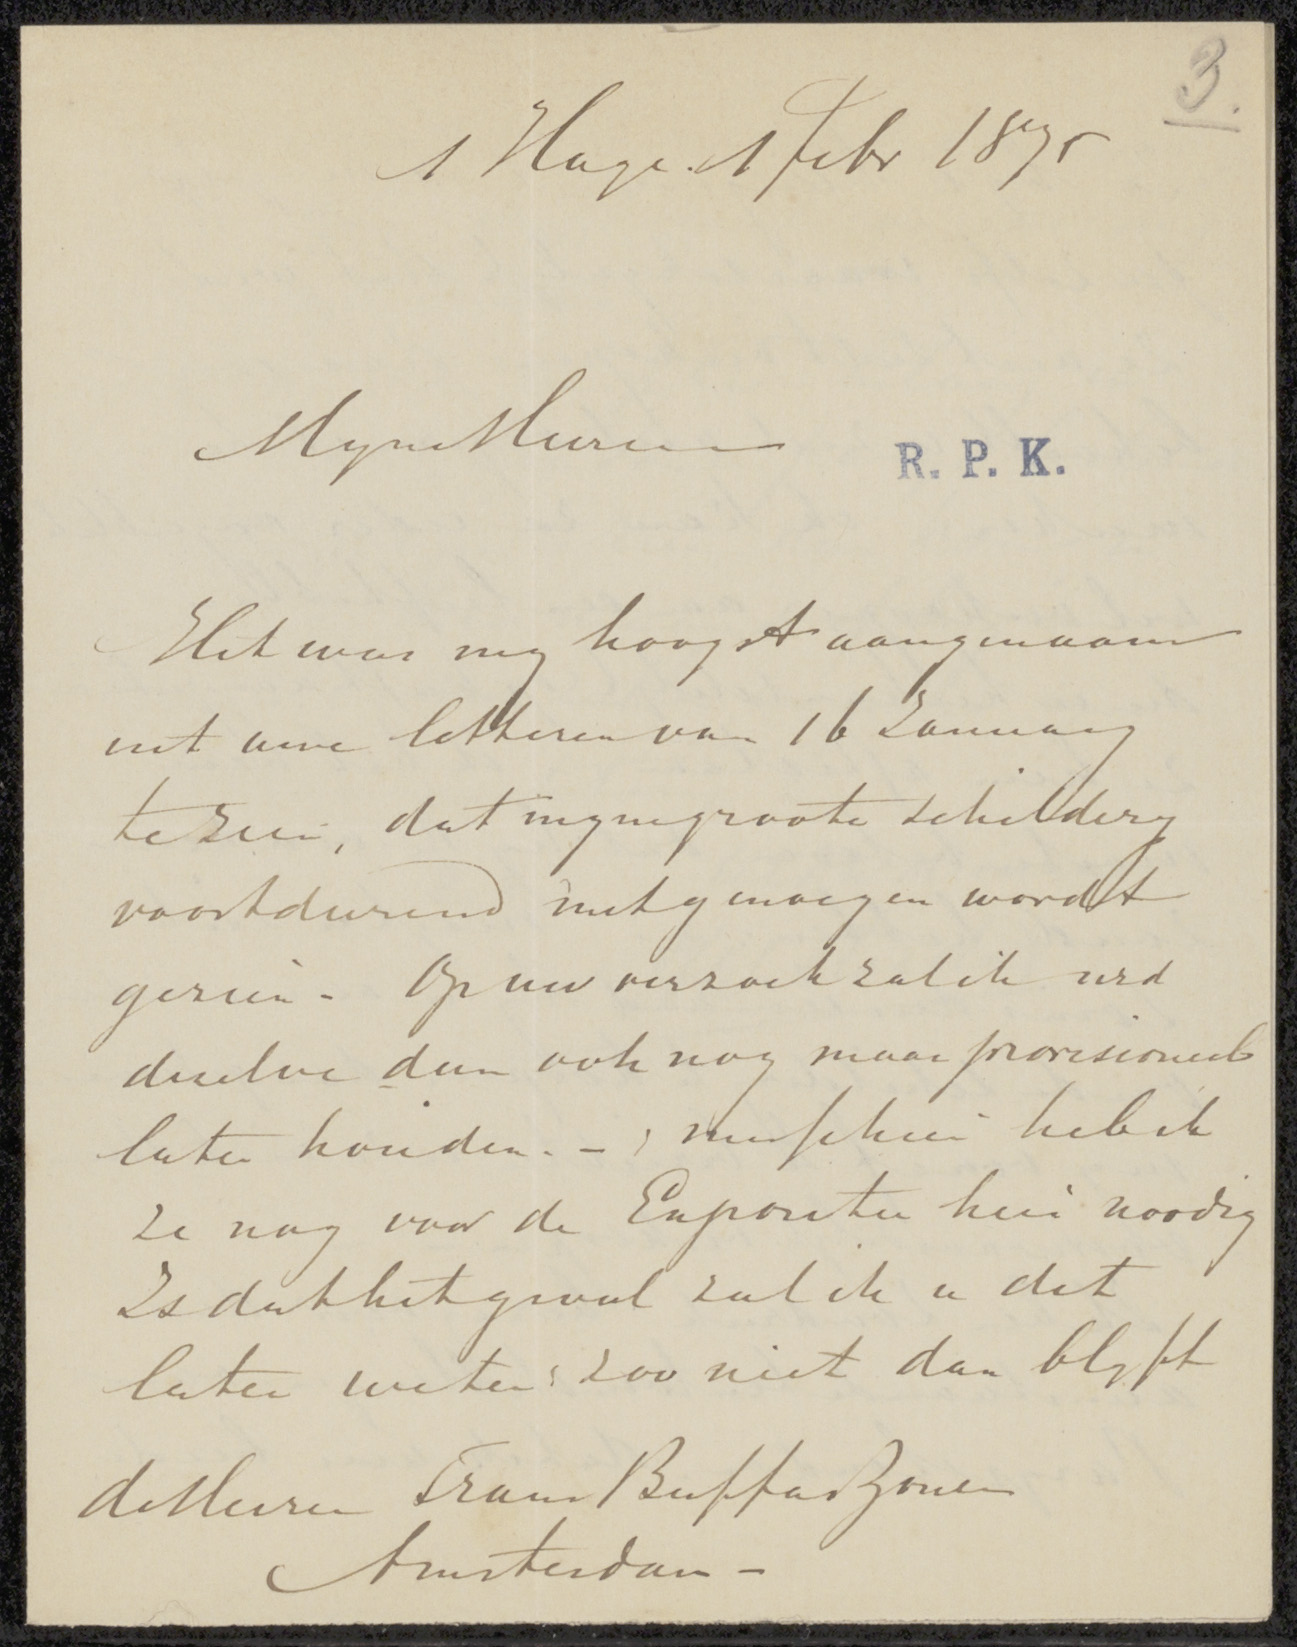 3.
s Hage. 1 Febr 1875
Myne Heeren
R. P. K.
Het was my hoogst aangenaam
uit uwe letteren van 16 January
te zien, dat myne groote schildery
voortdurend met genoegen wordt
gezien. Op uw verzoek zal ik u
dezelve dan ook nog maar provisioneel
laten houden. - misschien heb ik
ze nog voor de Expositie hier noodig
Is dat het geval zal ik u dit
laten weten; zoo niet dan blyft
de Heeren Frans Buffa & Zonen
Amsterdam -